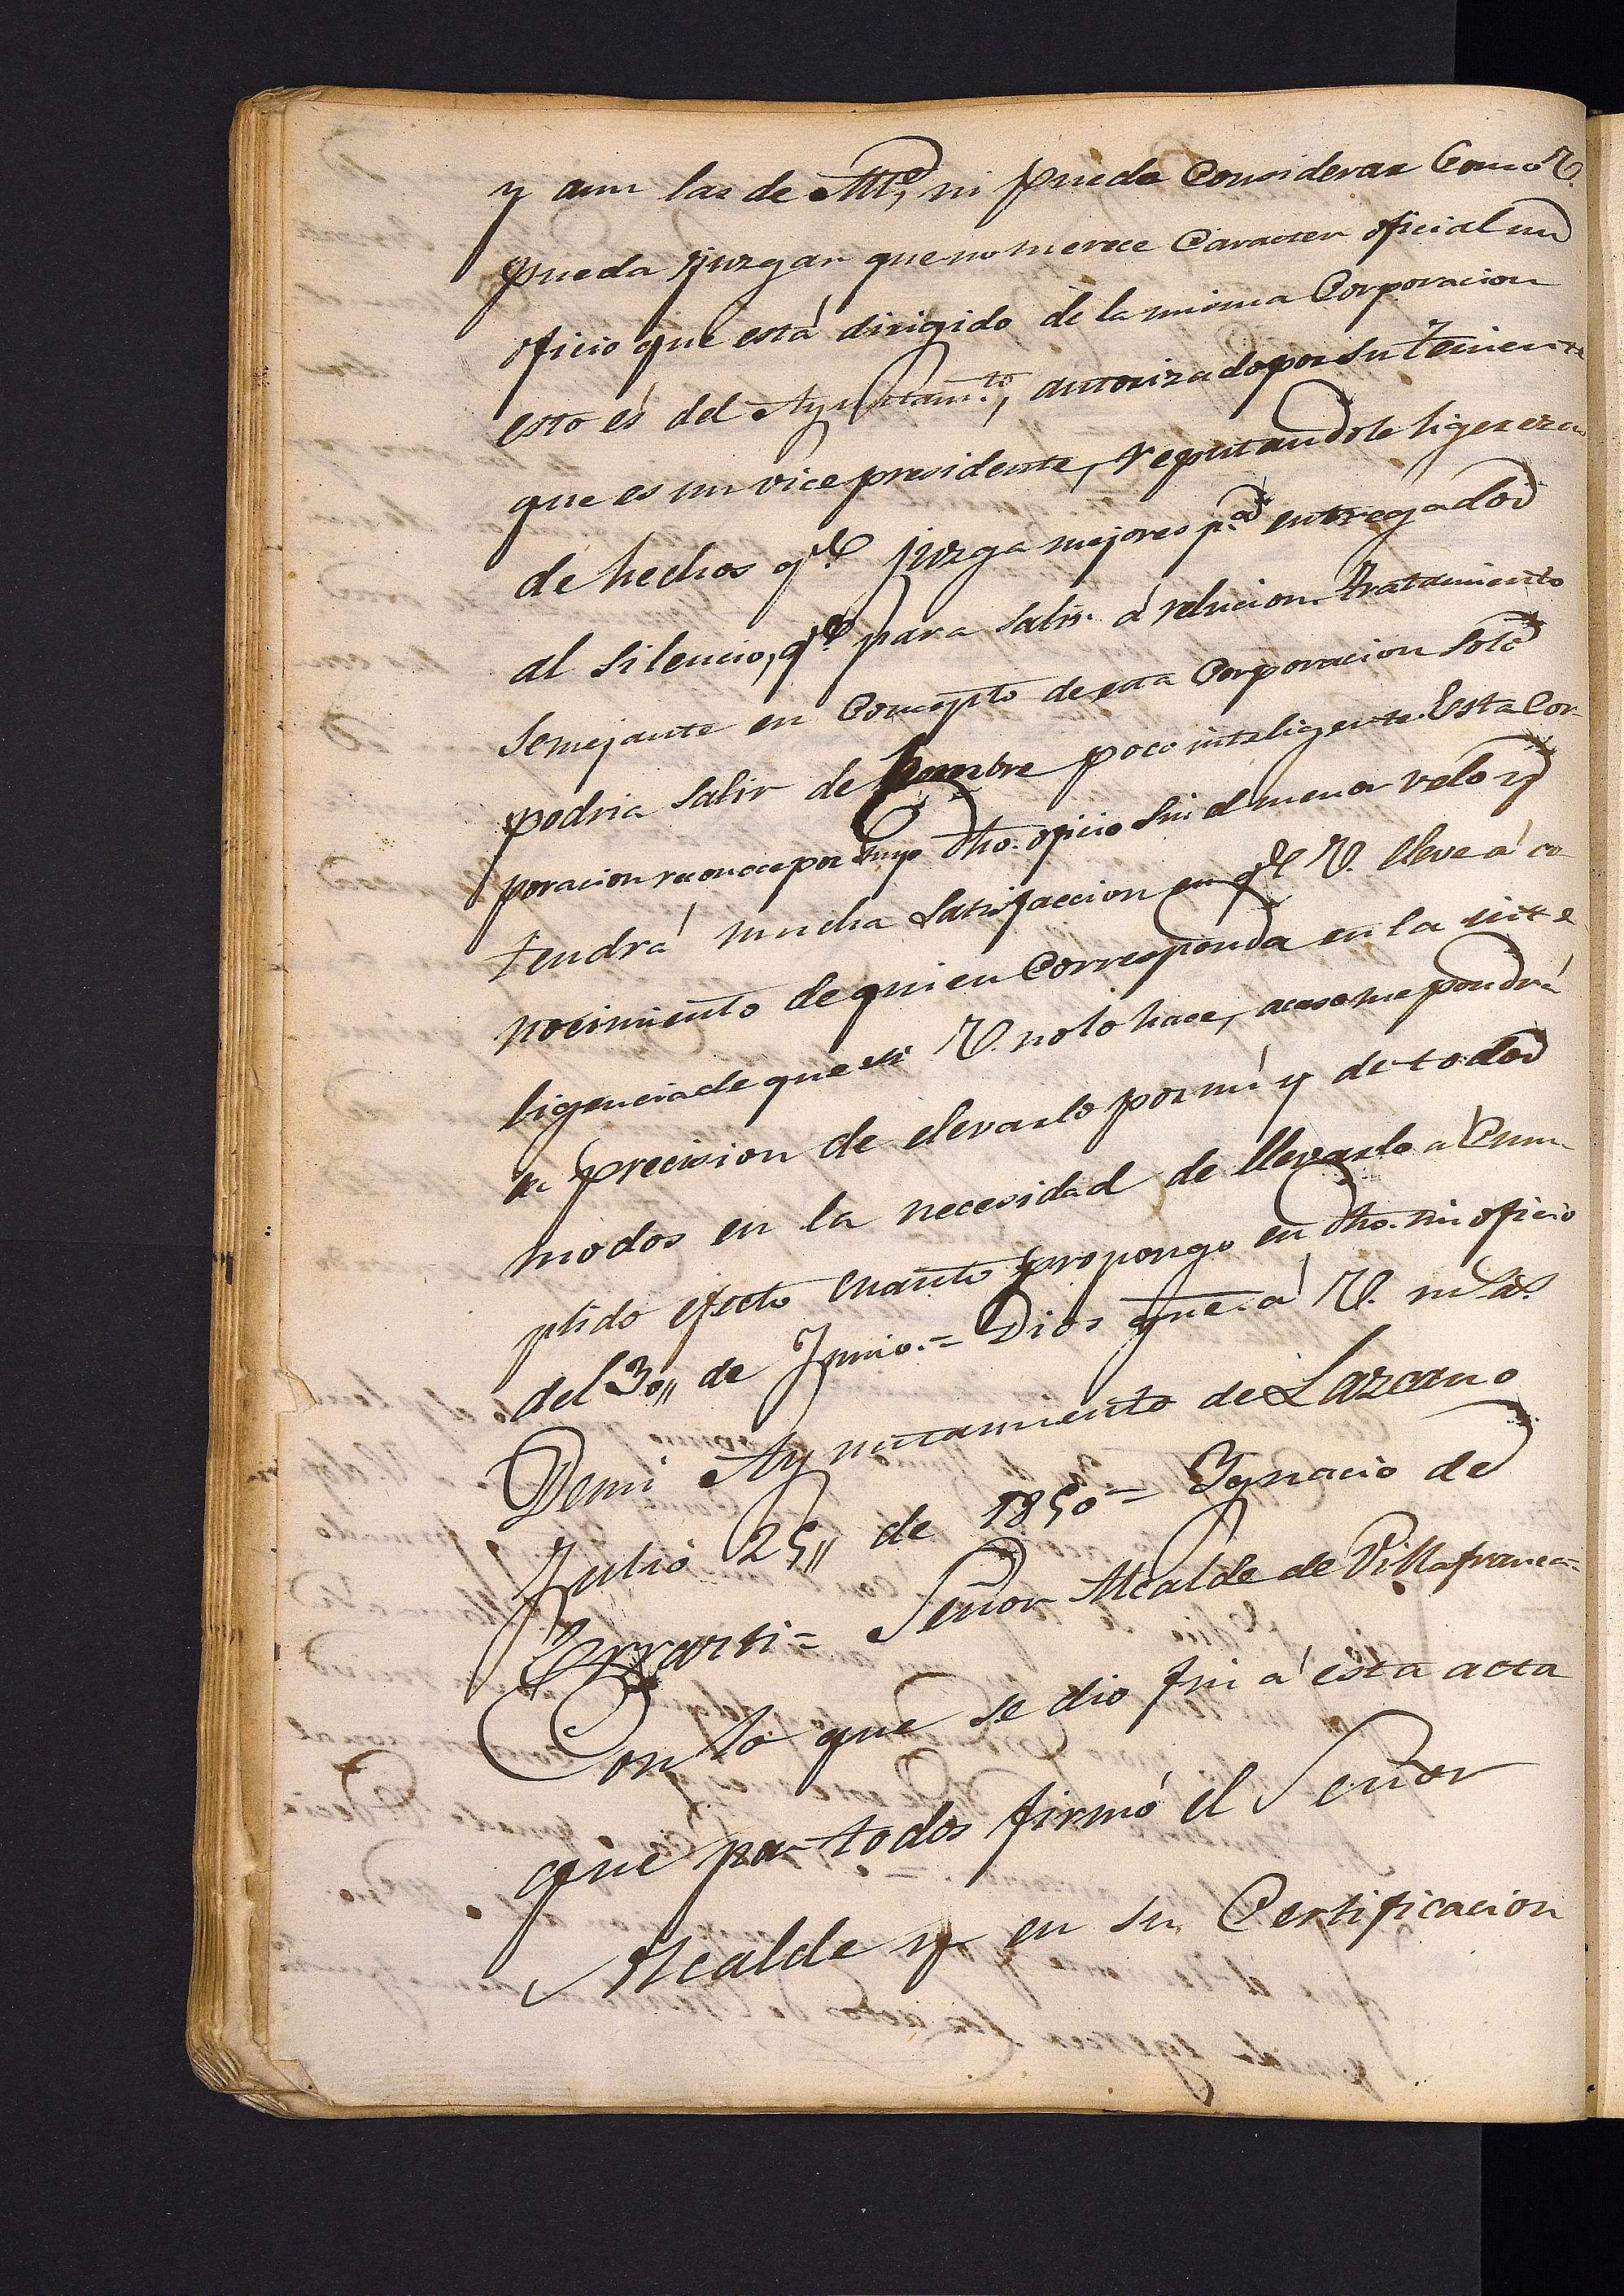 y aun las de Md, ni puedo Considerar Como V.
pueda juzgar que no merece Caracter oficial un
oficio que está dirigido de la misma Corporacion
esto es del Ayuntam.to, autorizado por su Teniente
que es un vice presidente, reputandole ligereza
de hechos q.e juzga mejores p.a entregados
al silencio, q.e para salir á relucion. tratamiento
semejante en Concepto de esta Corporacion solo
podria salir de hombre poco inteligente. Esta Cor-
poracion reconoce por suyo dho. oficio sin el menor velo y
tendrá mucha satisfaccion en q.e V. lleve á co
nocimiento de quien Corresponda en la inte
ligencia de que si V. no lo hace, acaso me pondrá
en precision de elevarlo por mí y de todos
modos en la necesidad de llevarlo a Cum-
plido efecto cuanto propongo en dho. mi oficio
del 30,, de Junio.= Dios gue. á V. m.s a.s
De mi Ayuntamiento de Lazcano
Julio 25,, de 1850= Ygnacio de
= Señor Alcalde de Villafranca=
Con lo que se dio fin á esta acta
que por todos firmó el Señor
Alcalde y en su Certificacion